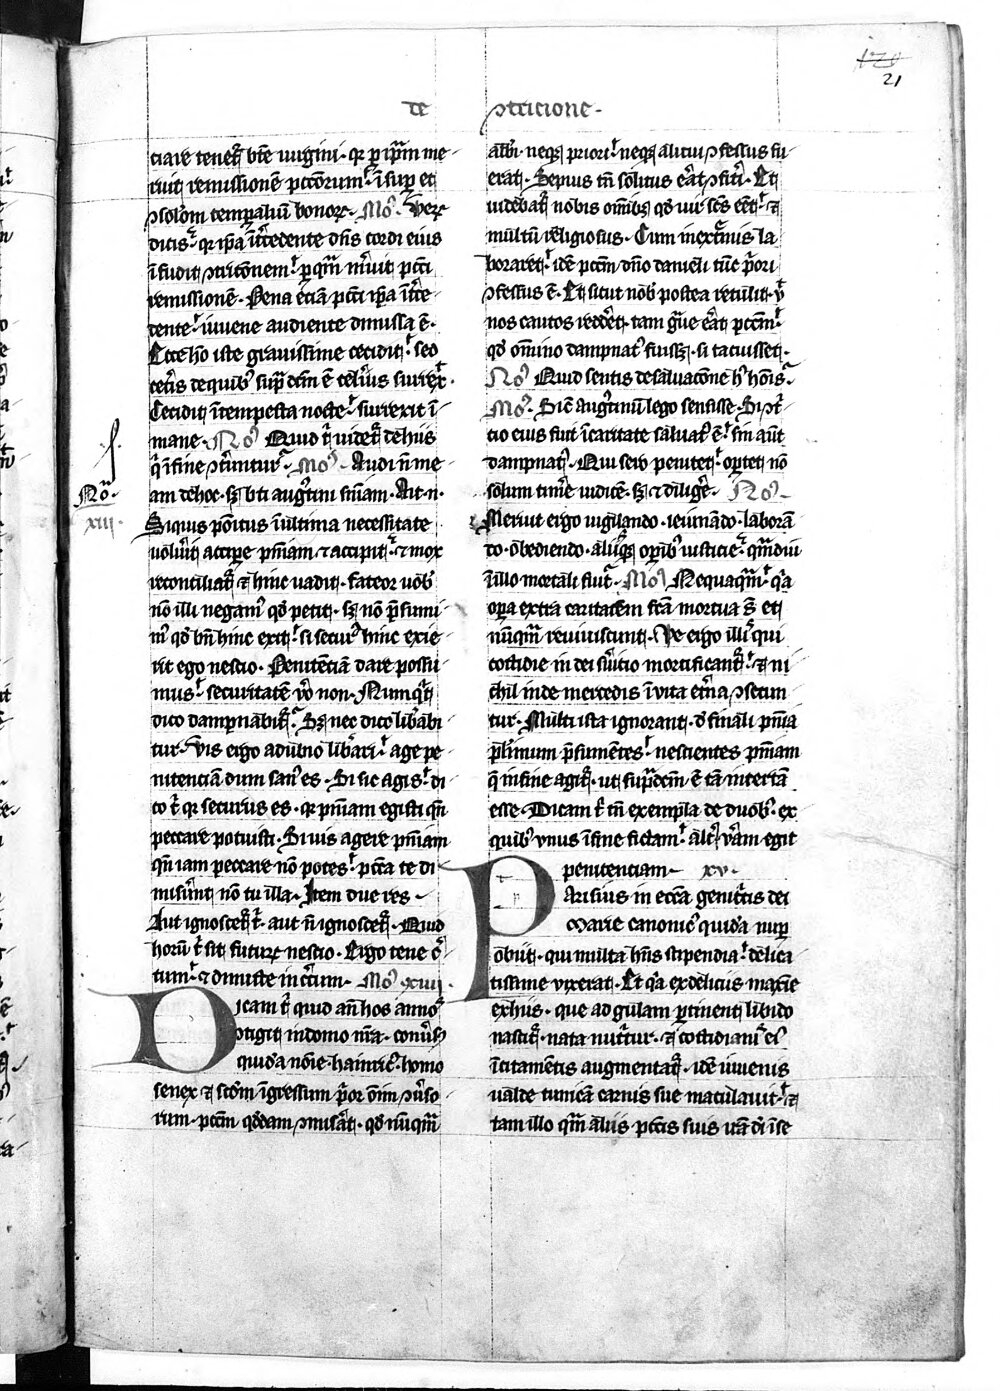 de ꝯtricione.
120
21
ciare teneꝛ̃ bt̃e uirgini. qꝛ ꝑ ip̃am me
ruit remissionẽ pcc̃orum. ĩsuꝑ et
ꝯsolõm temꝑaliũ bonoꝝ. No᷒. Verꝝ
dicis. qꝛ ip̃a ĩtc̃edente dñs cordi eius
ĩfudit ꝯtric̃onem. ꝑ qm̃ m̃uit pcc̃i
remissionẽ. Pena eciã pcc̃i ip̃a ĩtc̃e
dente. iuuene audiente dimissa ẽ.
Ecce hõ iste grauissime cecidit. seo
cet̃is de quib᷒ sup̃ dc̃m ẽ cel̃ius surrex̃.
Cecidit ĩtempesta nocte. surrexit ĩ
mane. No᷒ Quid t̃ uideꝛ̃ de hiis
q̃ ĩ fine ꝯt̃untur. Mo᷒. Audi ñ me
am de hoc. sꝫ bt̃i aug᷒tini sñiam. Ait .n.
Siquis põitus ĩ ultima necessitate
uolũit accipe pñiam ⁊ accipit. ⁊ mox
reconciliaꝛ̃ ⁊ hinc uadit. fateor uob᷒
nõ illi negam᷒ qd̃ petit. sꝫ nõ p̃sumi
m᷒ qd̃ bñ hinc exit. si secur᷒ hinc exie
rit ego nescio. Penitẽciã dare possu
mus. securitatẽ ṽo non. Numqͥd
dico dampnabiꝛ̃. Sꝫ nec dico lib̃abi
tur. Vis ergo a dubio lib̃ari. age pe
nitenciã dum san᷒ es. Si sic agis. di
co t̃ qꝛ securus es. qꝛ pñiam egisti qñ
peccare potuisti. Si uis agere pñiam
qñ iam peccare nõ potes. pcc̃a te di
miser̃nt nõ tu illa. Item due res.
Aut ignosceꝛ̃ t̃. aut ñ ignosceꝛ̃. Quid
horũ t̃ sit futuꝝ nescio. Ergo tene c̃
tum. ⁊ dimitte inc̃tum. Mo᷒ xiiii.
Dicam t̃ quid añ hos annos
ꝯtigit in domo nr̃a. conũs᷒
quid̃a nõie hainric᷒. homo
senex ⁊ scd̃m ĩgressum p̃or om̃i ꝯũso
rum. pcc̃m qd̃dam ꝯmisãt. qd̃ nũqm̃
No᷒.
xiii.
abb̃i. neqꝫ priori. neqꝫ alicui ꝯfessus fu
erat. Sepius tñ solitus ẽat ꝯfit̃i. Et
uidebaꝛ̃ nobis om̃ibꝫ qd̃ uir sc̃s eẽt. ⁊
multũ religiosus. Cum in ext̃mis la
boraret. idẽ pcc̃m dño danieli tũc p̃ori
ꝯfessus ẽ. Et sicut nob᷒ postea retulit. ṽ
nos cautos redd̃et. tam g̃ue ẽat pcc̃m.
qd̃ om̃ino dampnat᷒ fuissꝫ. si tacuisset.
No᷒ Quid sentis de saluacõne h᷒ hõis.
Mo᷒. Sic̃ aug᷒tinũ lego sensisse. Si ꝯt̃
cio eius fuit ĩ caritate saluat᷒ ẽ. sin aũt
dampnat᷒. Qui sero penitet. oꝑtet nõ
solum tim̃e iudicẽ. sꝫ ⁊ dilig̃e. No᷒.
Meruit ergo uigilando. ieiunãdo. laborã
do. obediendo. aliisqꝫ oꝑib᷒ iusticie. qm̃diu
ĩ illo mortali fuit. Mo᷒ Nequaqm̃. qͥa
oꝑa extra caritatem fc̃a mortua st̃ et
nũqm̃ reuiuiscunt. Ve ergo illis qui
cottidie in dei s̃uitio mortificanꝛ̃. ⁊ ni
chil inde mercedis ĩ uita et̃na ꝯsecun
tur. Multi ista ignorant. d̃ finali pñia
pl̃imum p̃sumẽtes. nescientes pñiam
q̃ in fine agiꝛ̃. ut sup̃dc̃m ẽ tã incertã
esse. Dicam t̃ tñ exempla de duob᷒. ex
quib᷒ unus ĩ fine fictam. alt᷒ ũam egit
penitenciam. xv.
Parisius in ecc̃a genitͥcis dei
marie canonic᷒ quid̃a nuꝑ
obiit. qui multa hñs stipendia. delica
tissime uixerat. Et qͥa ex deliciis maxĩe
ex hiis. que ad gulam ꝑtinent libido
nasciꝛ̃. nata nutͥtur. ⁊ cottidianis ei᷒
ĩcitamẽtis augmentaꝛ̃. idẽ iuuenis
ualde tunicã carnis sue maculauit. ⁊
tam illo qm̃ aliis pcc̃is suis irã di ĩ se